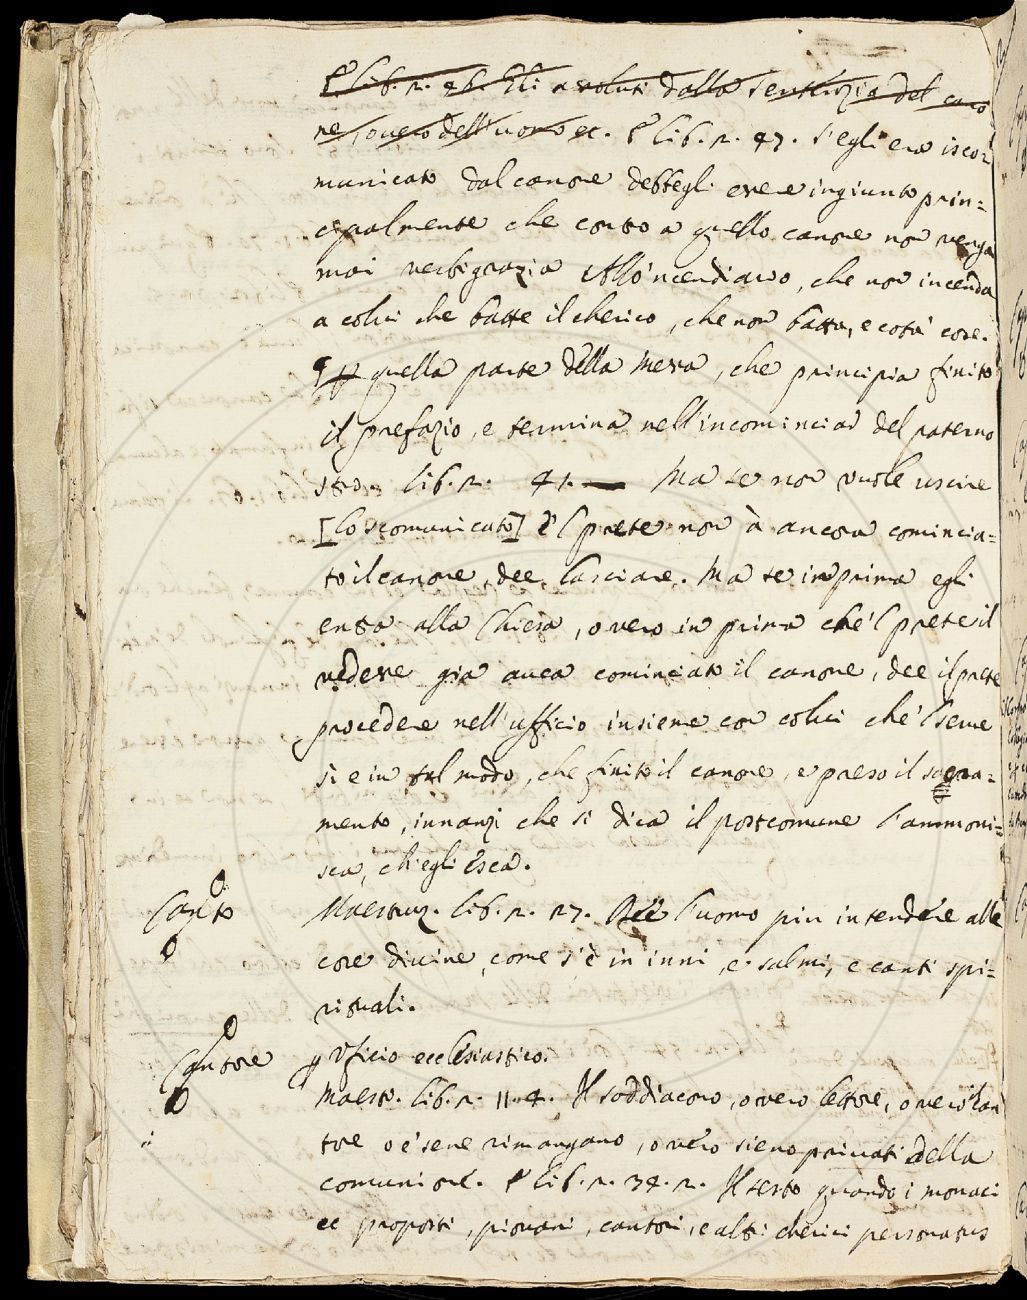 E lib. 2. 46. Eli asoluti dalla sentenzia del cano
ne, overo dell'uomo ec. E lib. 2. 47. S'egli era iscon
municato dal canone debbegli essere ingiunto prin=
cipalmente che contro a quello canone non venga
mai verbigrazia Allo 'ncendiario, che non incenda
a colui che batte il cherico, che non batta, e cotà cose.
¶ quella parte della Messa, che principia finito
il prefazio, e termina nell'incominciar del paterno
stro. lib. 2. 41. — Ma se non vuole uscire
[lo scomunicato] e 'l prete non à ancora comincia=
to il canone, dee lasciare. Ma se imprima egli
entra alla Chiesa, overo in prima che 'l prete il
vedesse già avea cominciato il canone, dee il prete
procedere nell'ufficio insieme con colui che 'l serve
sì e in tal modo, che finito il canone, e preso il sagra=
mento, innanzi che si dica il postcomune l'ammoni=
sca, ch'egli esca.
Canto
Maestruz. lib. 2. 27. Dee l'uomo più intendere alle
cose divine, come s'è in inni, e salmi, e canti spi=
rituali.
Cantore
¶ Uficio ecclesiastico.
Maestr. lib. 2. 11. 4. Il soddiacono, overo lettore, overo 'l can
tore o e' sene rimangano, overo sieno privati della
comunione. E lib. 2. 34. 2. Il sesto quando i monaci
ec proposti, piovani, cantori, e altri cherici personatus